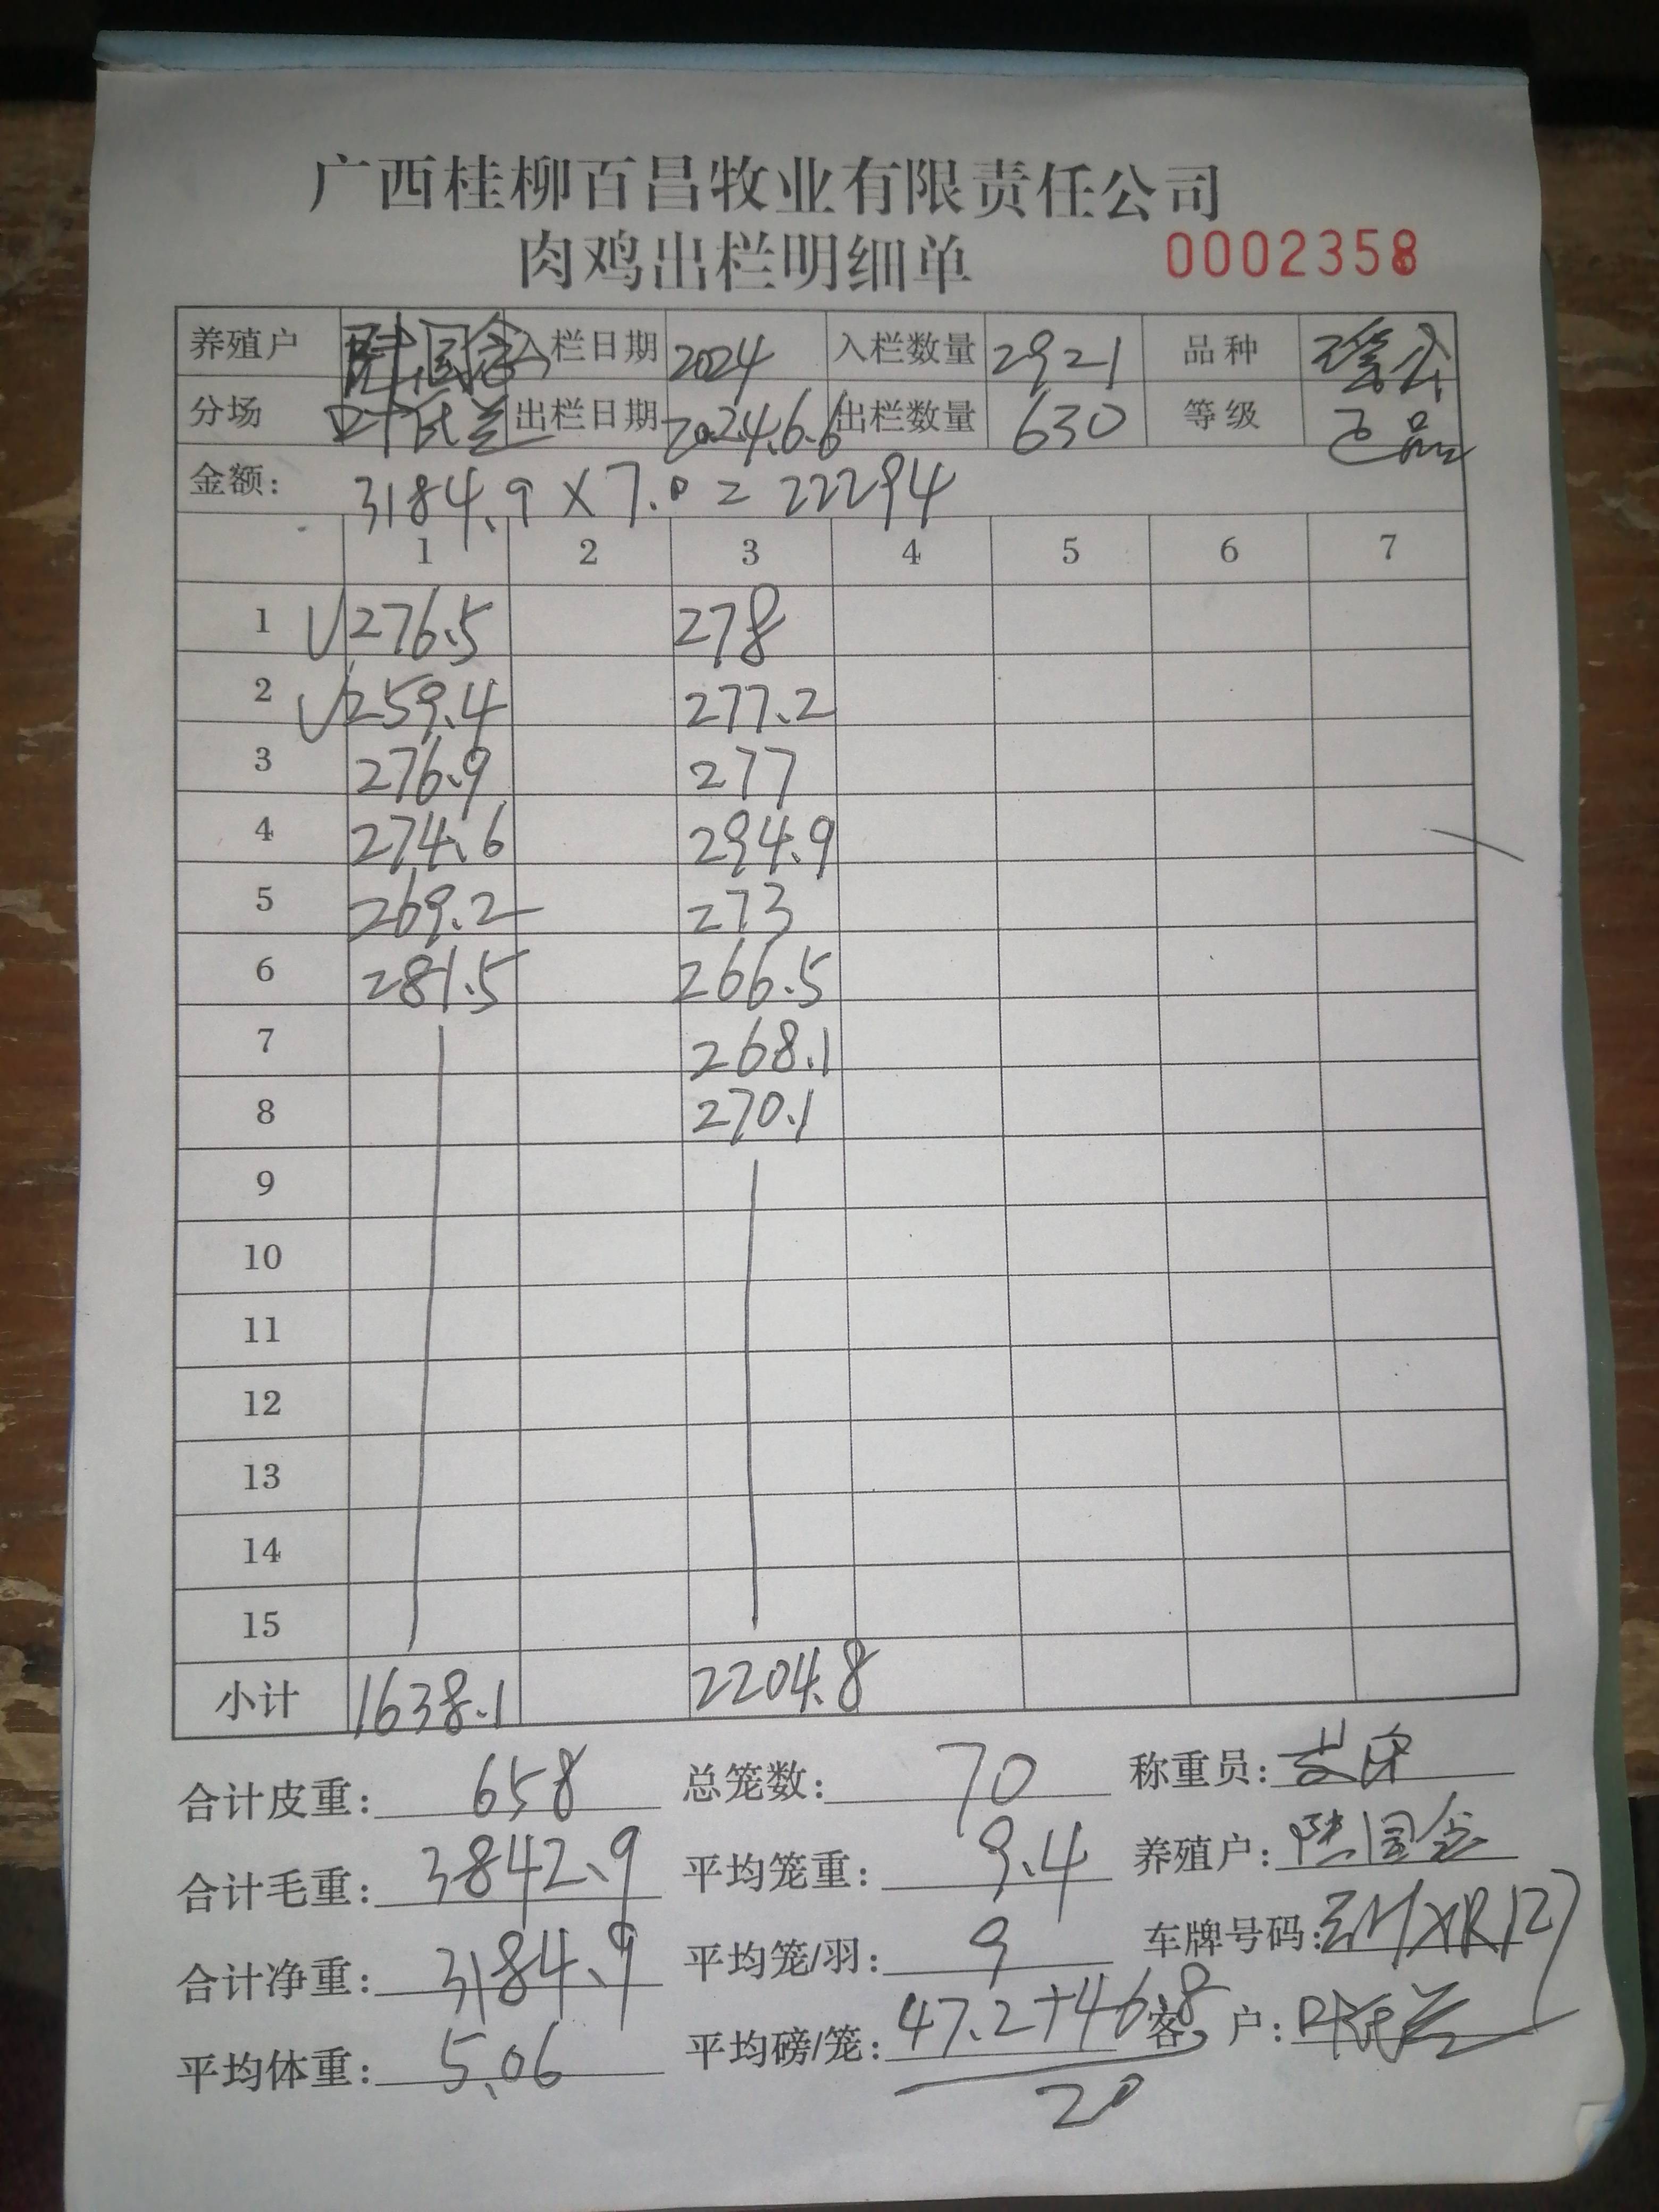 广西桂柳百昌牧业有限责任公司
肉鸡出栏明细单 0002358
养殖户 陆国念 入栏日期 2024 入栏数量 2921 品种 瑶公
分场 叶氏兰 出栏日期 2024.6.6 出栏数量 630 等级 正品
金额: 3184.9 X 7.0 = 22294
1 2 3 4 5 6 7
1 √276.5 278
2 √259.4 277.2
3 276.9 277
4 274.6 294.9
5 269.2 273
6 281.5 266.5
7 268.1
8 270.1
9
10
11
12
13
14
15
小计 1638.1 2204.8
合计皮重: 658 总笼数: 70 称重员:
合计毛重: 3842.9 平均笼重: 9.4 养殖户: 陆国念
合计净重: 3184.9 平均笼/羽: 9 车牌号码:
平均体重: 5.06 平均磅/笼: 47.2+46.8 客 户: 叶氏兰
20